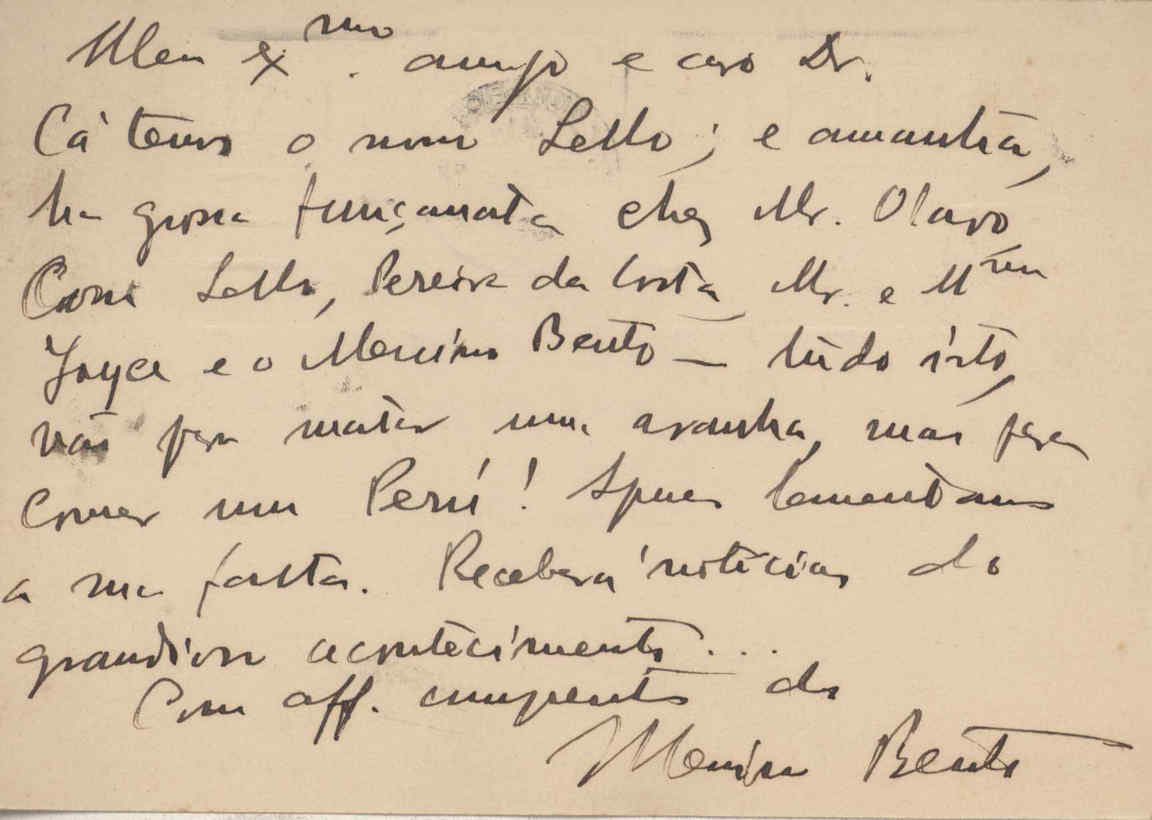 Meu exmo. amigo e caro Dr.
Cá temos o nosso Lello; e amanhã,
ha grossa funçanata chez Mr. Olavo,
Com Lello, Pereira da Costa, Mr. e Mme
Joyce e o Menino Bento — tudo isto,
não para matar uma aranha, mas para
comer um Perú! Apenas lamentamos
a sua falta. Receberá noticias do
grandioso acontecimento...
Com aff. cumpentos do
Menino Bento